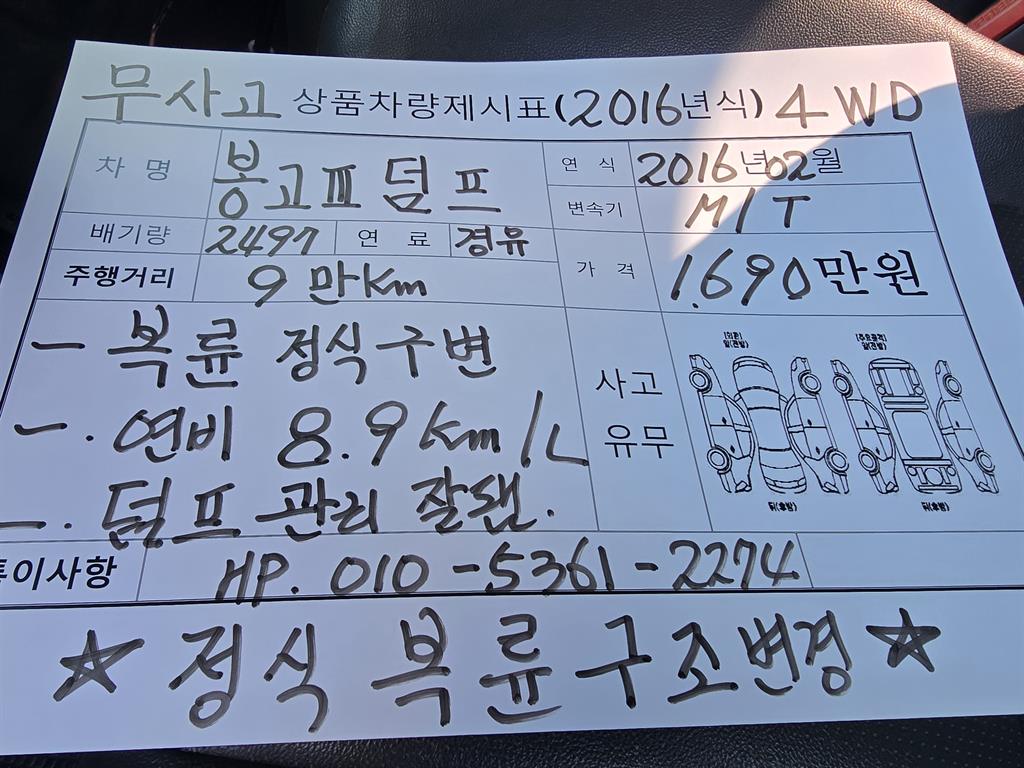 무사고 상품차량제시표(2016년식) 4WD
차 명 봉고Ⅲ 덤프 연 식 2016년02월
변속기 M/T
배기량 2497 연 료 경유
주행거리 9만Km 가 격 1.690만원
- 복륜 정식구변
-. 연비 8.9Km/L
-. 덤프 관리 잘됀.
사고
유무
특이사항 HP. 010-5361-2274
☆ 정식 복륜구조변경 ☆